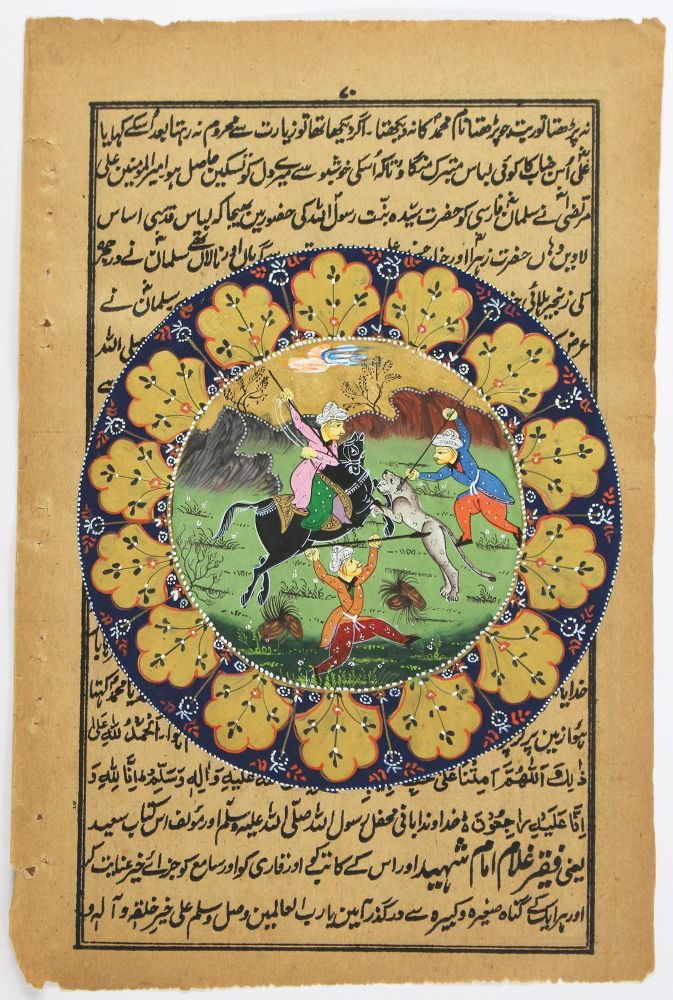 ۸۰
نہ پڑھتا توریت جو پڑھتا نام محمدؐ کا نہ دیکھتا۔ اگر دیکھا تھا تو زیارت سے محروم نہ رہتا بعد اُسکے کہا یا
علیؓ اُس جناب کا کوئی لباس متبرک منگاؤ تاکہ اُسکی خوشبو سے میرے دل کو تسکین حاصل ہو امیر المومنین علی
مرتضیٰؓ نے سلمانؓ فارسی کو حضرت سیدہ بنت رسول اللہ کی حضور میں بھیجا کہ لباس قدسی اساس
لاویں وہاں حضرت زہراؓ اور گریاں اور نالاں تھے سلمانؓ نے در حجرہ
کی زنجیر ہلائی سلمانؓ نے
عرض صلی اللہ
خدایا یا محمدؐ کہتا
ہوا زمین پر ہوا۔ الحمد للہ علیٰ
ذٰلک اللّٰھم امتنا علیٰ علیہ و اٰلہٖ وسلم انا للہ و
انا علیہ راجعون ہ خداوندا بانی محفل رسول اللہ صلّی اللہ علیہ وسلّم اور مؤلف اس کتاب سعید
یعنی فقیر غلام امام شہید اور اس کے کاتب کو اور قاری کو اور سامع کو جزائے خیر عنایت کر
اور ہر ایک کے گناہ صغیرہ و کبیرہ سے درگذر آمین یا رب العالمین وصل وسلم علیٰ خیر خلقہ و آلہ و